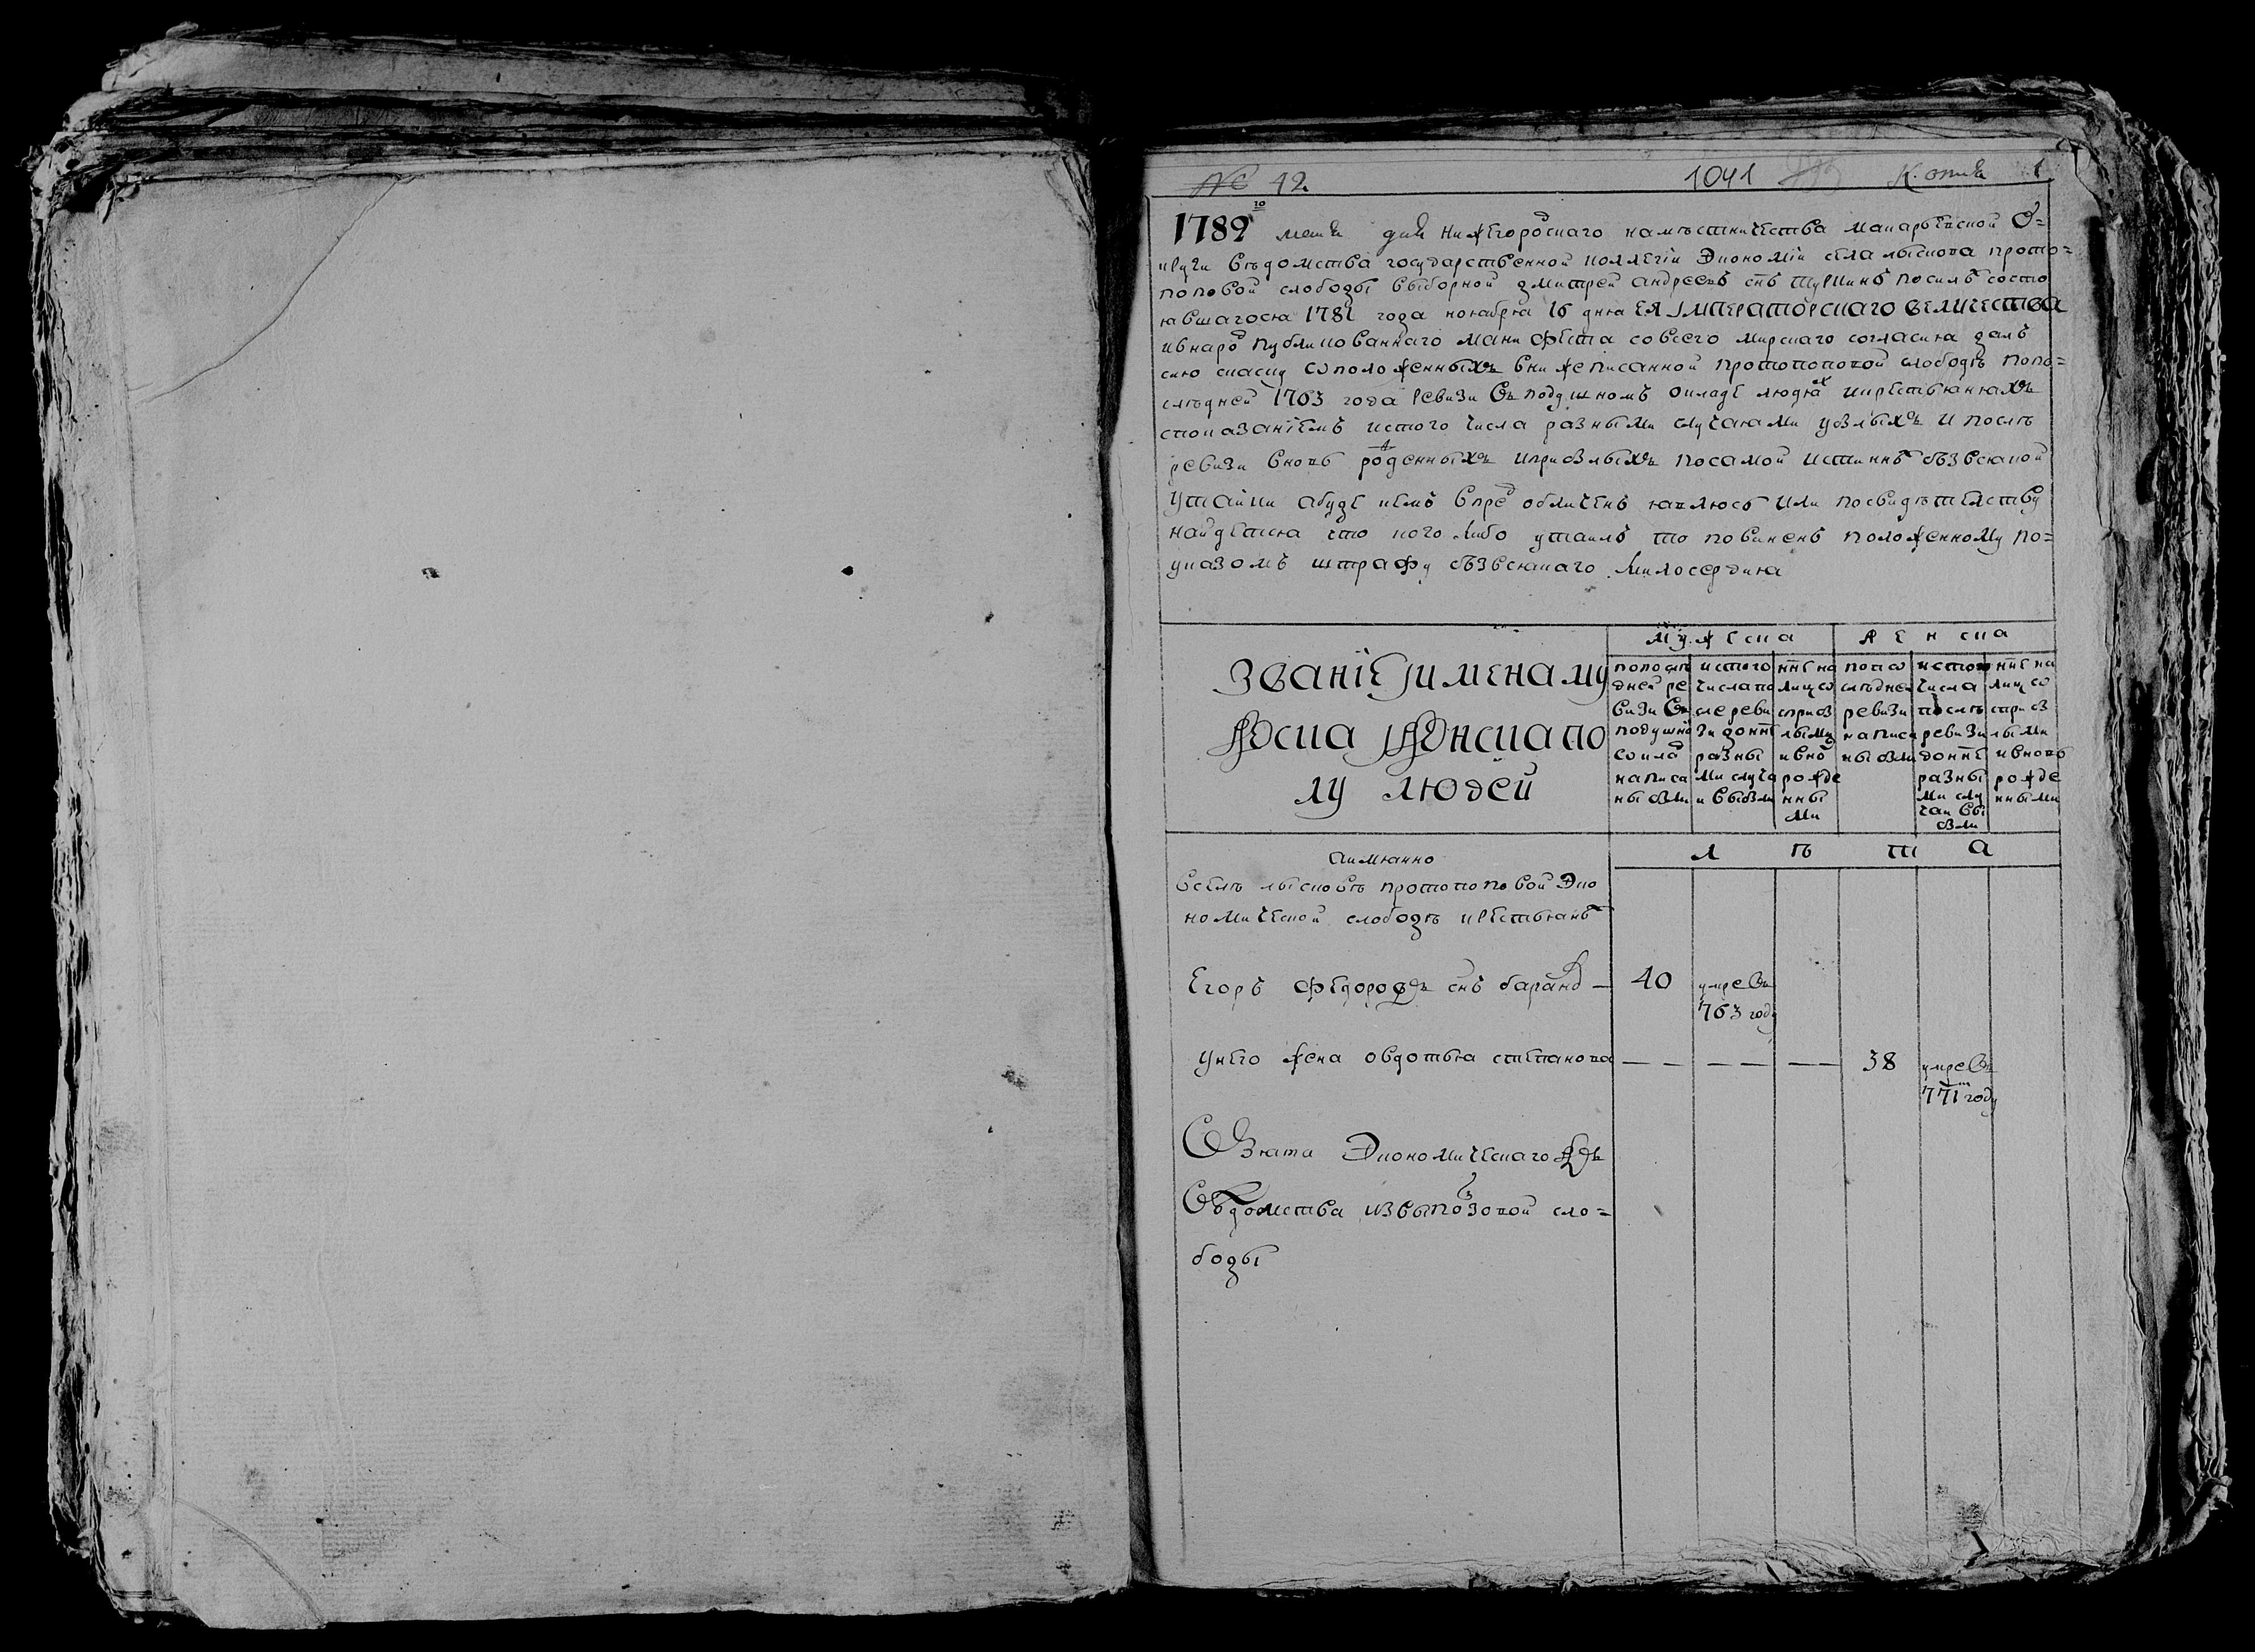 № 42. 1041 К. опись 1
1782го месяца дня Нижегородскаго наместничества макарьевской о=
круги ведомства государственной коллегии Экономии села лыскова прото=
поповой слободы выборной дмитрей андреевъ снъ по силе состо
явшагося 1781 года ноября 16 дня ЕЯ ІМПЕРАТОРСКАГО ВЕЛИЧЕСТВА
ивнарод публикованнаго манифеста совсего мирскаго согласия далъ
сию скаску оположенныхъ внижеписанной протопоповой слободѣ попо=
слѣдней 1763 года ревизи въ подушномъ окладе людях икрестьянахъ
спопазаниемъ истого числа разными случаями убылыхъ и послѣ
ревизи вновь рожденныхъ иприбылыхъ посамой истиннѣ безвсякой
утайки абуде кемъ впред обличенъ явлюсь или посвидѣтелству
найдетца что кого либо утаилъ то повиненъ положенному по=
указомъ штрафу безвсякаго милосердия
Званіе Їименаму
жеска Їженскапо
лу людей
мужеска женска
попосле
дней ре
визи въ
подушно
окладе
написа
ны были
истого
числапо
слереви
зи донне
разны
ми случа
и выбыли
нне на
лицо
сприб
лыми
ивно
рожде
нны
ми
попо
слѣдней
ревизи
написа
ны были
истого
числа
послѣ
ревизи
донне
разны
ми слу
чаи вы
были
нне на
лицо
с приб
лыми
ивновь
рожде
нными
лѣта
Аимянно
Вселѣ лысковѣ протопоповой Эко
номической слободѣ крестьянъ
Егоръ Федоровъ снъ баранов — 40 умре въ
763 году
унего жена овдотья степанова — — — 38 умре въ
771м году
Взята Экономическагожъ
Ведомства изъ слo=
боды